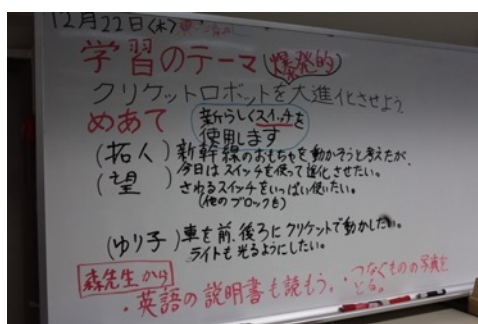 12月22日(木)
学習のテーマ(爆発的)
クリケットロボットを大進化させよう
めあて
新らしくスイッチを
使用します
(拓人)新幹線のおもちゃを動かそうと考えたが、
今日はスイッチを使って進化させたい。
(望)さわるスイッチをいっぱい使いたい。
(他のブロックも)
(ゆり子)車を前、後ろにクリケットで動かしたい。
ライトも光るようにしたい。
森先生から
・英語の説明書も読もう。
・つなぐものの写真を
とる。